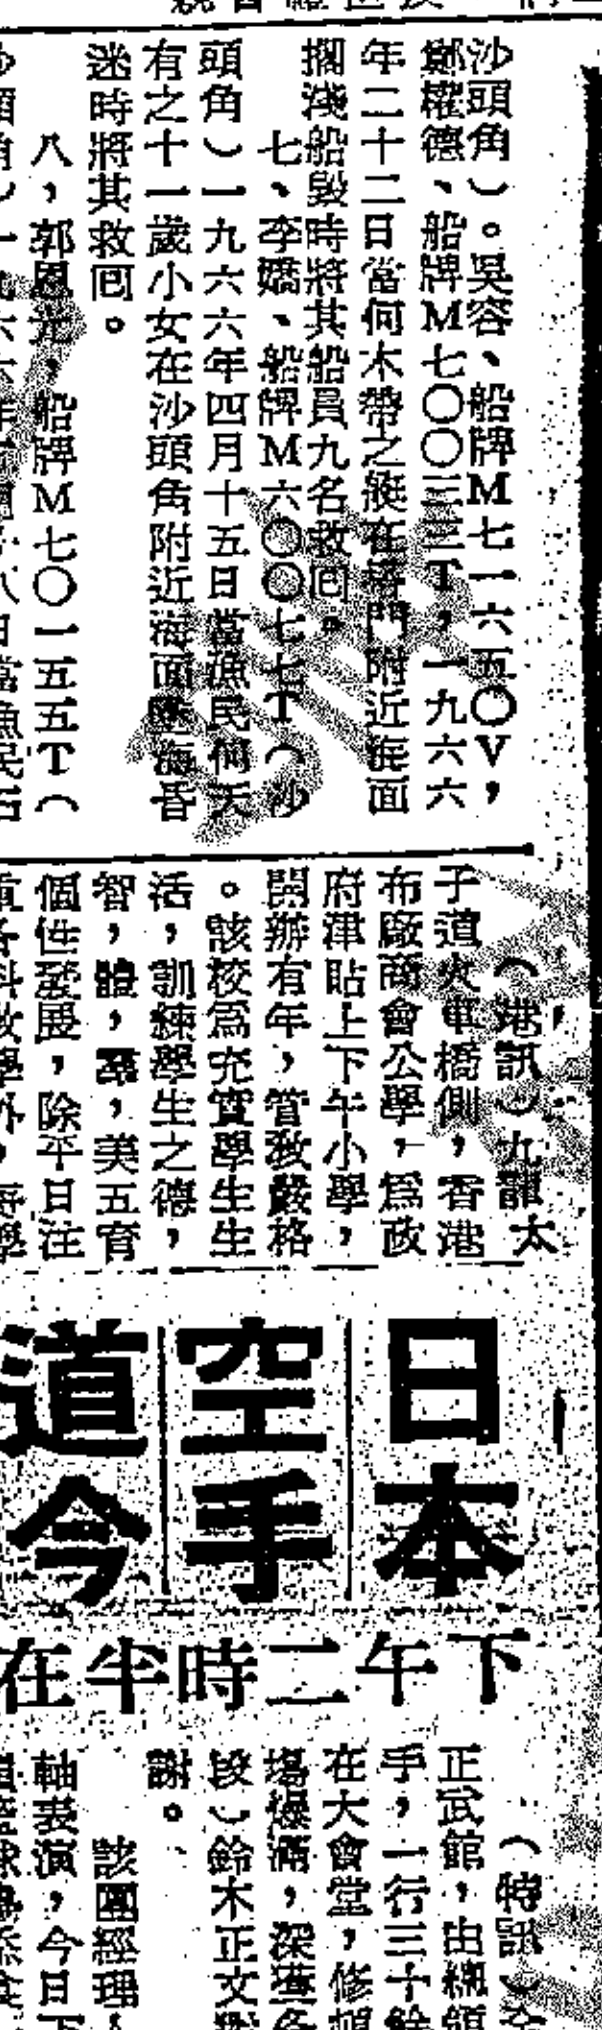 沙頭角）。吳容、船牌M七一六五〇V，
鄭權德、船牌M七〇〇三三T，一九六六
年二十二日當何木帶之艇在塔門附近海面
擱淺船毀時將其船員九名救囘。
七、李嬌、船牌M六〇〇七七T（沙
頭角）一九六六年四月十五日當漁民何天
有之十一歲小女在沙頭角附近海面墮海昏
迷時將其救囘。
八，郭恩光，船牌M七〇一五五T（
（港訊）九龍太
子道火車橋側，香港
布廠商會公學，爲政
府津貼上下午小學，
開辦有年，管教嚴格
。該校爲充實學生生
活，訓練學生之德，
智，體，羣，美五育
個性發展，除平日注
重各科教學外，每學
日本
空手
道今
下午二時半在
（特訊）
正武館，由總領
手，一行三十餘
在大會堂，修頓
塲爆滿，深獲各
段）鈴木正文
謝。
該團經理
軸表演，今日下